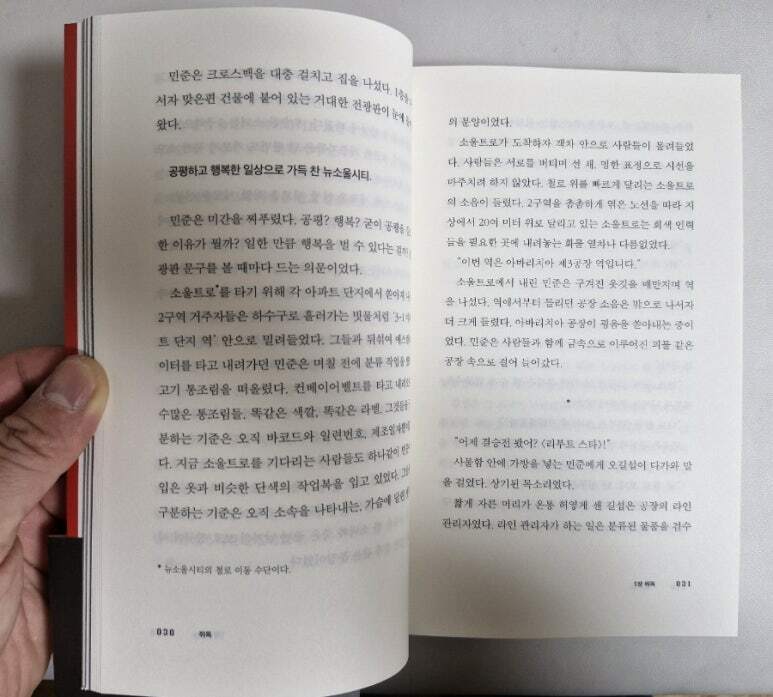 민준은 크로스백을 대충 걸치고 집을 나섰다. 1층을
서자 맞은편 건물에 붙어 있는 거대한 전광판이 눈에
왔다.
공평하고 행복한 일상으로 가득 찬 뉴소울시티.
민준은 미간을 찌푸렸다. 공평? 행복? 굳이 공평을
한 이유가 뭘까? 일한 만큼 행복을 벌 수 있다는 걸까?
광판 문구를 볼 때마다 드는 의문이었다.
소울트로*를 타기 위해 각 아파트 단지에서 쏟아져
2구역 거주자들은 하수구로 흘러가는 빗물처럼 '3-1
트 단지 역' 안으로 밀려들었다. 그들과 뒤섞여 에스
이터를 타고 내려가던 민준은 며칠 전에 분류 작업을 했
고기 통조림을 떠올렸다. 컨베이어벨트를 타고 내려오
수많은 통조림들, 똑같은 색깔, 똑같은 라벨. 그것들을
분하는 기준은 오직 바코드와 일련번호, 제조일자뿐이
다. 지금 소울트로를 기다리는 사람들도 하나같이
입은 옷과 비슷한 단색의 작업복을 입고 있었다.
구분하는 기준은 오직 소속을 나타내는, 가슴에 달린
* 뉴소울시티의 철로 이동 수단이다.
030 취독
의 문양이었다.
소울트로가 도착하자 객차 안으로 사람들이 몰려들었
다. 사람들은 서로를 버티며 선 채, 멍한 표정으로 시선을
마주치려 하지 않았다. 철로 위를 빠르게 달리는 소울트로
의 소음이 들렸다. 2구역을 촘촘하게 엮은 노선을 따라 지
상에서 20여 미터 위로 달리고 있는 소울트로는 회색 인력
들을 필요한 곳에 내려놓는 화물 열차나 다름없었다.
"이번 역은 아바리치아 제3공장 역입니다."
소울트로에서 내린 민준은 구겨진 옷깃을 매만지며 역
을 나섰다. 역에서부터 들리던 공장 소음은 밖으로 나서자
더 크게 들렸다. 아바리치아 공장이 굉음을 쏟아내는 중이
었다. 민준은 사람들과 함께 금속으로 이루어진 괴물 같은
공장 속으로 걸어 들어갔다.
*
"어제 결승전 봤어? 〈리부트 스타〉!"
사물함 안에 가방을 넣는 민준에게 오길섭이 다가와 말
을 걸었다. 상기된 목소리였다.
짧게 자른 머리가 온통 허옇게 센 길섭은 공장의 라인
관리자였다. 라인 관리자가 하는 일은 분류된 물품을 검수
1장 취독 031